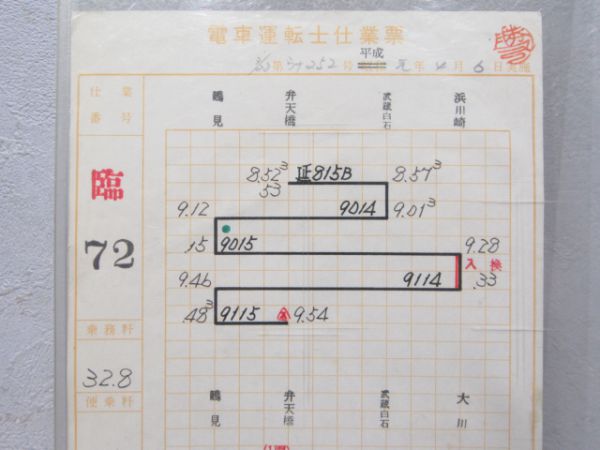 電車運転士仕業票
平成
第 252号 元年4月6日実施
仕業
番号
臨
72
乗務粁
32.8
便乗粁
鶴見 弁天橋 武蔵白石 浜川崎
8.52³ 延815B 8.57³
53
9.12 9014 9.01³
.15 9015 9.28
入換
9.46 9114 .33
.48³ 9115 9.54
鶴見 弁天橋 武蔵白石 大川